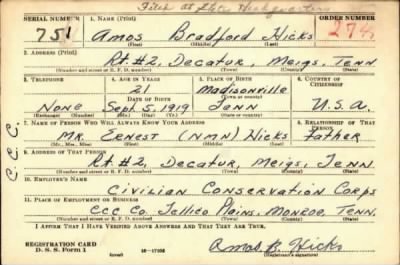 Filed at State Headquarters
SERIAL NUMBER 1. NAME (Print) ORDER NUMBER
751 Amos Bradford Hicks 274
(First) (Middle) (Last)
2. ADDRESS (Print)
Rt. #2, Decatur, Meigs, Tenn
(Number and street or R. F. D. number) (Town) (County) (State)
3. TELEPHONE 4. AGE IN YEARS 5. PLACE OF BIRTH 6. COUNTRY OF CITIZENSHIP
21 Madisonville
DATE OF BIRTH (Town or county)
None Sept. 5, 1919 Tenn U.S.A.
(Exchange) (Number) (Mo.) (Day) (Yr.) (State or country)
7. NAME OF PERSON WHO WILL ALWAYS KNOW YOUR ADDRESS 8. RELATIONSHIP OF THAT PERSON
Mr. Ernest (NMN) Hicks Father
(Mr., Mrs., Miss) (First) (Middle) (Last)
9. ADDRESS OF THAT PERSON
Rt. #2, Decatur, Meigs, Tenn.
(Number and street or R. F. D. number) (Town) (County) (State)
10. EMPLOYER'S NAME
Civilian Conservation Corps
11. PLACE OF EMPLOYMENT OR BUSINESS
CCC Co. Tellico Plains, Monroe, Tenn.
(Number and street or R. F. D. number) (Town) (County) (State)
I AFFIRM THAT I HAVE VERIFIED ABOVE ANSWERS AND THAT THEY ARE TRUE.
REGISTRATION CARD
D. S. S. Form 1 (over) 16-17105 Amos B. Hicks
(Registrant's signature)
CCC